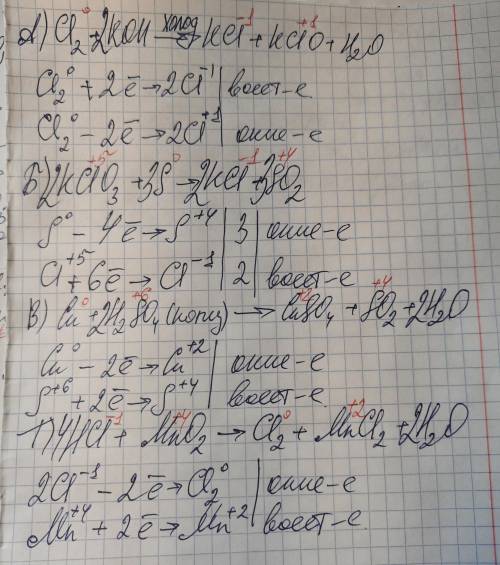 А) Cl₂⁰ + 2KOH —холод→ KCl⁻¹ + KCl⁺¹O + H₂O
Cl₂⁰ + 2ē → 2Cl⁻¹ | восст-е
Cl₂⁰ - 2ē → 2Cl⁺¹ | окис-е
Б) 2KCl⁺⁵O₃ + 3S⁰ → 2KCl⁻¹ + 3S⁺⁴O₂
S⁰ - 4ē → S⁺⁴ | 3 | окис-е
Cl⁺⁵ + 6ē → Cl⁻¹ | 2 | восст-е
В) Cu⁰ + 2H₂S⁺⁶O₄ (конц) → Cu⁺²SO₄ + S⁺⁴O₂ + 2H₂O
Cu⁰ - 2ē → Cu⁺² | окис-е
S⁺⁶ + 2ē → S⁺⁴ | восст-е
Г) 4HCl⁻¹ + Mn⁺⁴O₂ → Cl₂⁰ + Mn⁺²Cl₂ + 2H₂O
2Cl⁻¹ - 2ē → Cl₂⁰ | окис-е
Mn⁺⁴ + 2ē → Mn⁺² | восст-е